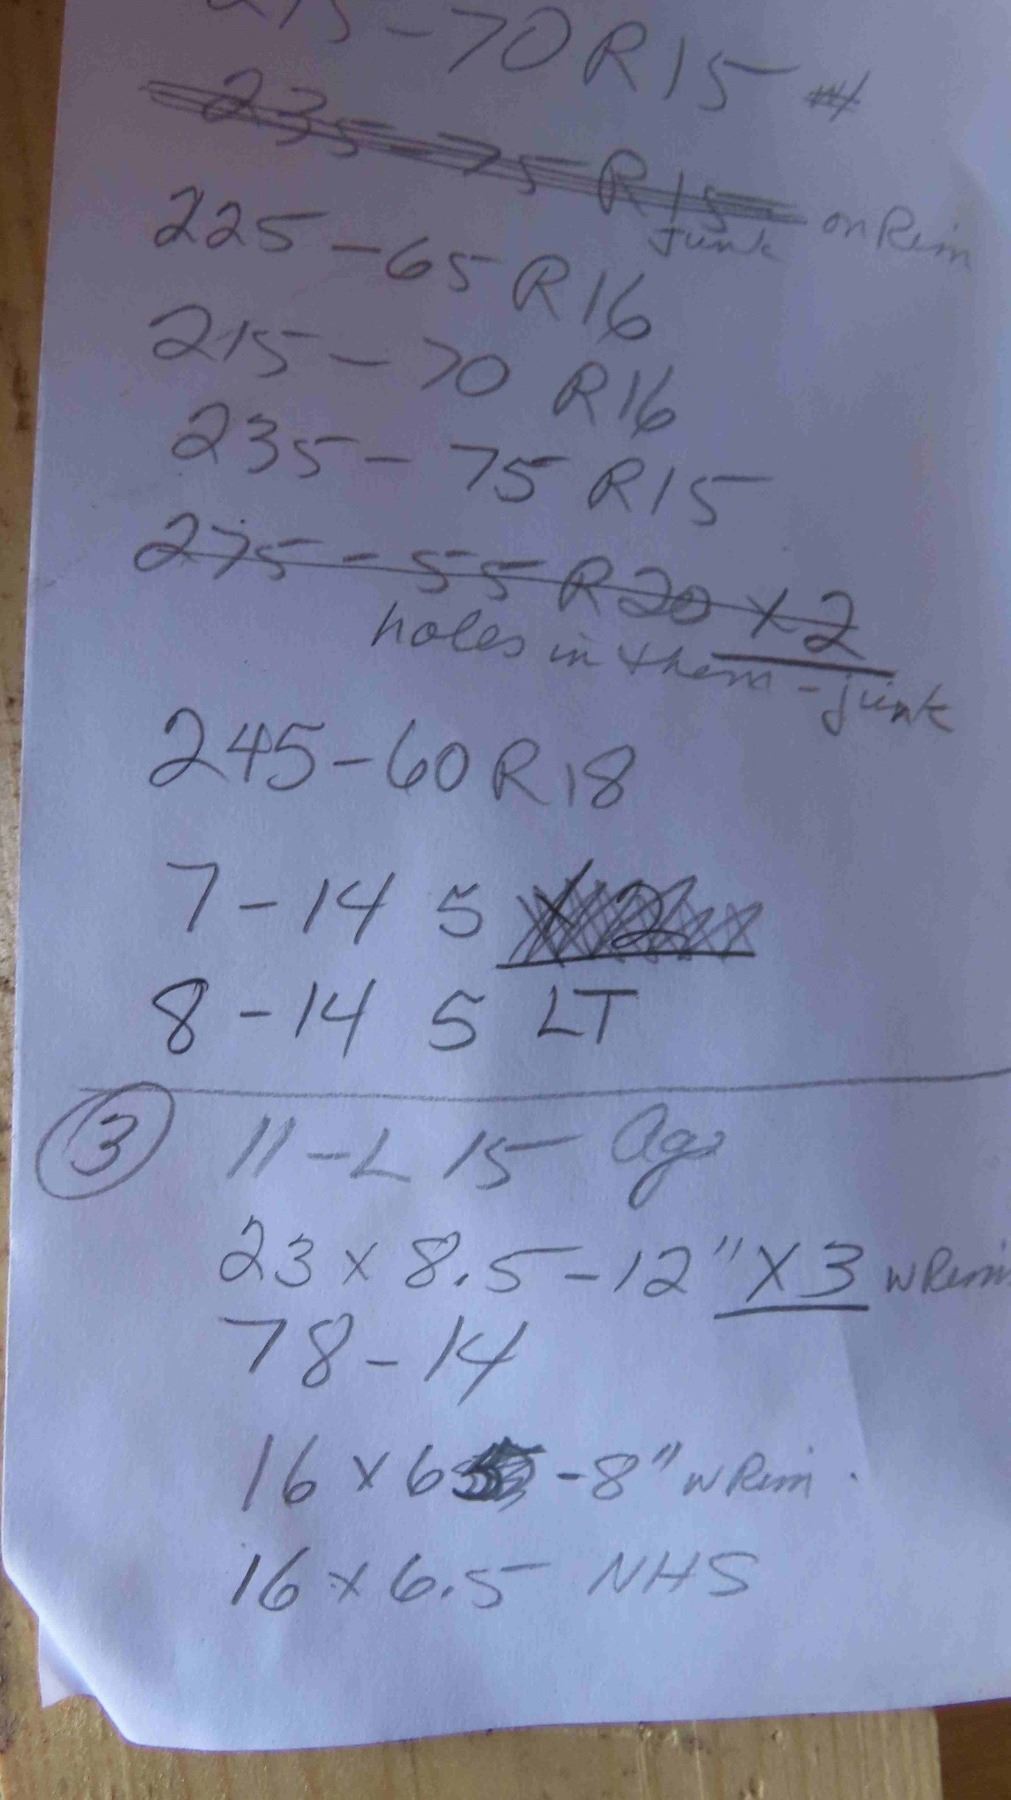 -70 R15
235-75 R15 on Rim
junk
225-65 R16
215-70 R16
235-75 R15
275-55 R20 x2
holes in them - junk
245-60 R18
7-14 5 x2
8-14 5 LT
③ 11-L 15 Ag
23 x 8.5-12" x3 w Rims
78-14
16 x 6 -8" w Rim
16 x 6.5 NHS